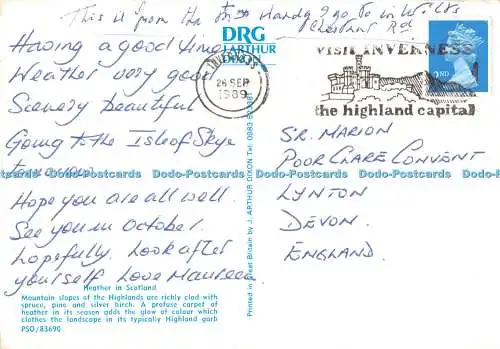 This is from the Miss Handy I go to in Wilts
Chestnut Rd
DRG
J. ARTHUR
DIXON
Having a good time
Weather very good
Scenery beautiful
Going to the Isle of Skye
tomorrow
Hope you are all well.
See you in October.
hopefully. Look after
yourself Love Maureen
INVERNESS
26 SEP
1989
VISIT INVERNESS
the highland capital
2ND
SR. MARION
POOR CLARE CONVENT
LYNTON
DEVON.
ENGLAND.
Printed in Great Britain by J. ARTHUR DIXON Tel: 0883
Dodo-Postcards Dodo-Postcards Dodo-Postcards Dodo-Postcards
Heather in Scotland
Mountain slopes of the Highlands are richly clad with
spruce, pine and silver birch. A profuse carpet of
heather in its season adds the glow of colour which
clothes the landscape in its typically Highland garb
PSD/83690